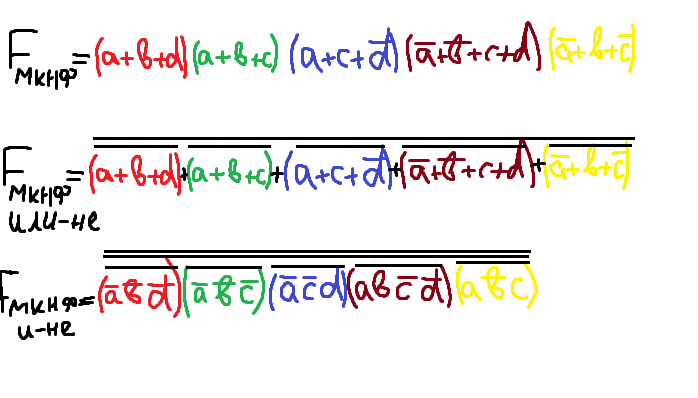 F МКНФ = (a+b+d)(a+b+c)(a+c+d̅)(a̅+b̅+c+d)(a̅+b+c̅)
F МКНФ ИЛИ-НЕ = (a+b+d)+(a+b+c)+(a+c+d̅)+(a̅+b̅+c+d)+(a̅+b+c̅)
F МКНФ И-НЕ = (a̅ b̅ d̅)(a̅ b̅ c̅)(a̅ c̅ d)(a b c̅ d̅)(a b̅ c)